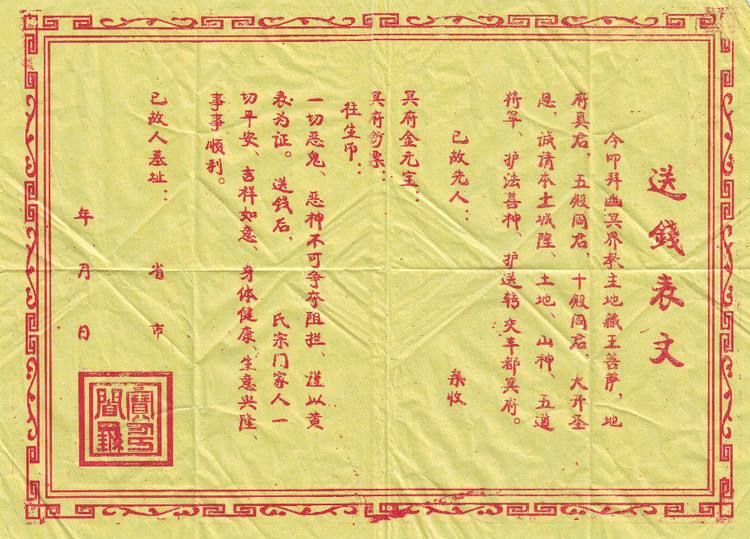 送錢表文
今叩拜幽冥界教主地藏王菩萨，地
府真君、五殿阎君、十殿阎君，大开圣
恩，诚请本土城隍、土地、山神、五道
将军、护法善神、护送转交丰都冥府。
已故先人： 亲收
冥府金元宝：
冥府钞票：
往生币：
一切恶鬼、恶神不可争夺阻拦、谨以黄
表为证。送钱后， 氏宗门家人一
切平安、吉祥如意、身体健康、生意兴隆、
事事顺利。
已故人墓址： 省 市
年 月 日